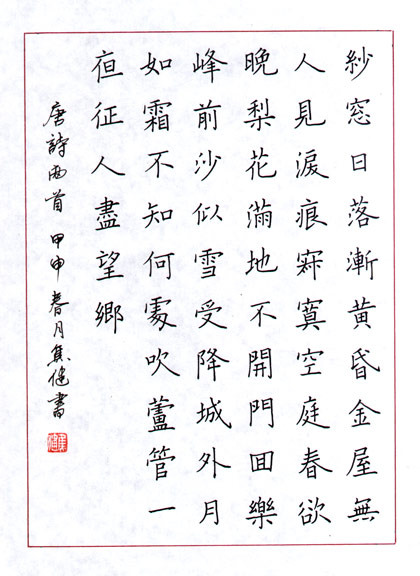 紗窓日落漸黄昏金屋無
人見淚痕寂寞空庭春欲
晚梨花滿地不開門囬樂
峰前沙似雪受降城外月
如霜不知何處吹蘆管一
亱征人盡望鄉
唐詩兩首 甲申春月焦健書